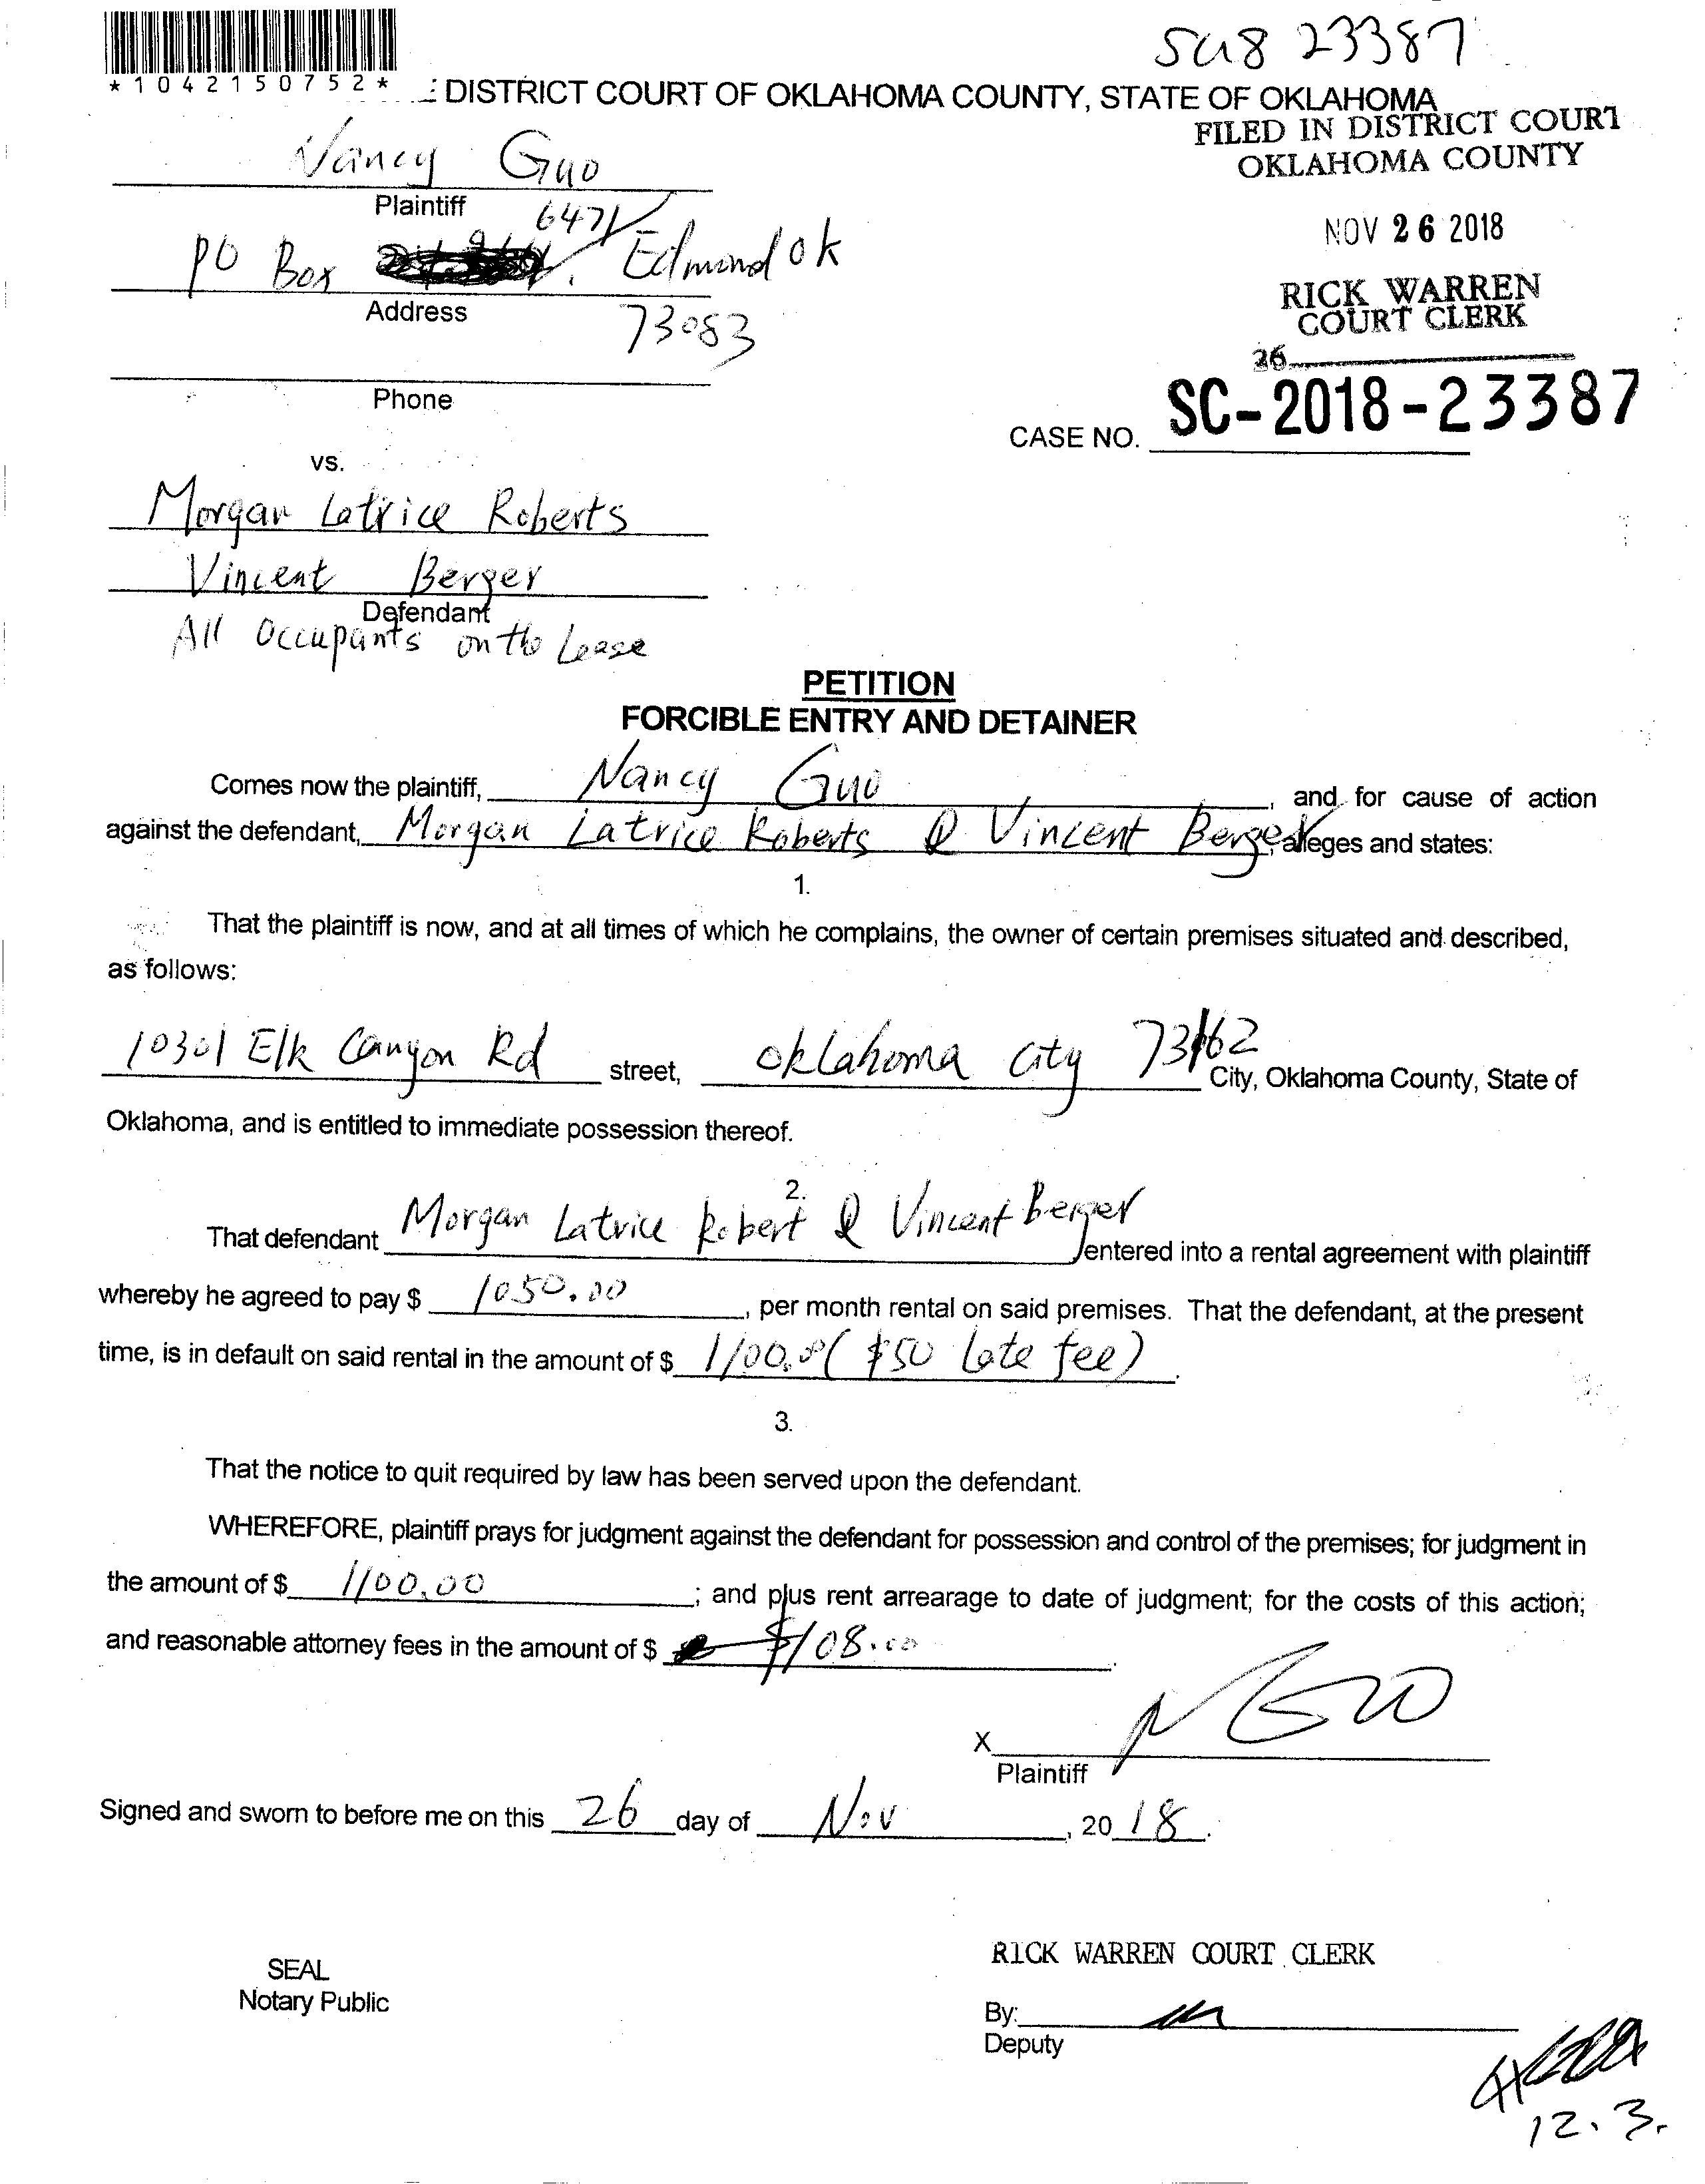 SC18 23387
*1042150752*
: DISTRICT COURT OF OKLAHOMA COUNTY, STATE OF OKLAHOMA
FILED IN DISTRICT COURT
OKLAHOMA COUNTY
Nancy Guo
Plaintiff
NOV 26 2018
6471
PO Box Edmond ok
Address
73083
RICK WARREN
COURT CLERK
36
Phone
CASE NO. SC-2018-23387
vs.
Morgan Latrice Roberts
Vincent Berger
Defendant
All Occupants on the Lease
PETITION
FORCIBLE ENTRY AND DETAINER
Comes now the plaintiff, Nancy Guo, and for cause of action
against the defendant, Morgan Latrice Roberts & Vincent Berger, alleges and states:
1.
That the plaintiff is now, and at all times of which he complains, the owner of certain premises situated and described,
as follows:
10301 Elk Canyon Rd street, oklahoma city 73162 City, Oklahoma County, State of
Oklahoma, and is entitled to immediate possession thereof.
2.
That defendant Morgan Latrice Robert & Vincent Berger entered into a rental agreement with plaintiff
whereby he agreed to pay $ 1050.00, per month rental on said premises. That the defendant, at the present
time, is in default on said rental in the amount of $ 1100.00 ( $50 late fee).
3.
That the notice to quit required by law has been served upon the defendant.
WHEREFORE, plaintiff prays for judgment against the defendant for possession and control of the premises; for judgment in
the amount of $ 1100.00; and plus rent arrearage to date of judgment; for the costs of this action;
and reasonable attorney fees in the amount of $ $108.00.
X N Guo
Plaintiff
Signed and sworn to before me on this 26 day of Nov, 2018.
RICK WARREN COURT CLERK
SEAL
Notary Public
By:
Deputy
12.3.